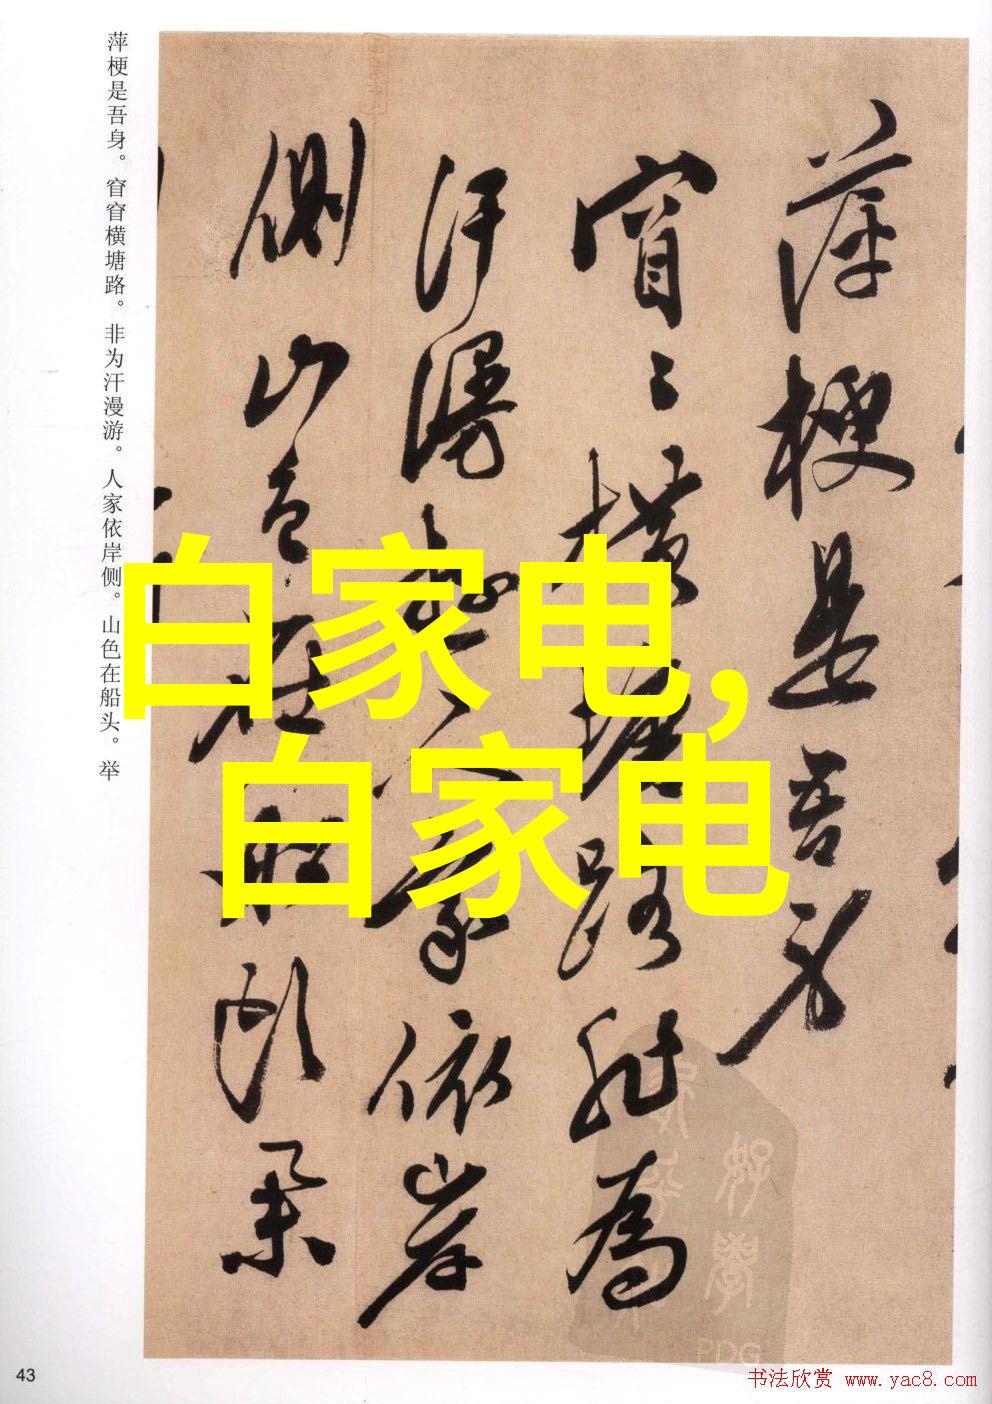 萍梗是吾身。窅窅横塘路。非为汗漫游。人家依岸侧。山色在船头。举
萍梗是吾身
窅〻横塘路非為
汗漫游人家依岸
侧山色在船头举
白家电,
白家电
好学
PDG
43
书法欣赏 www.yac8.com